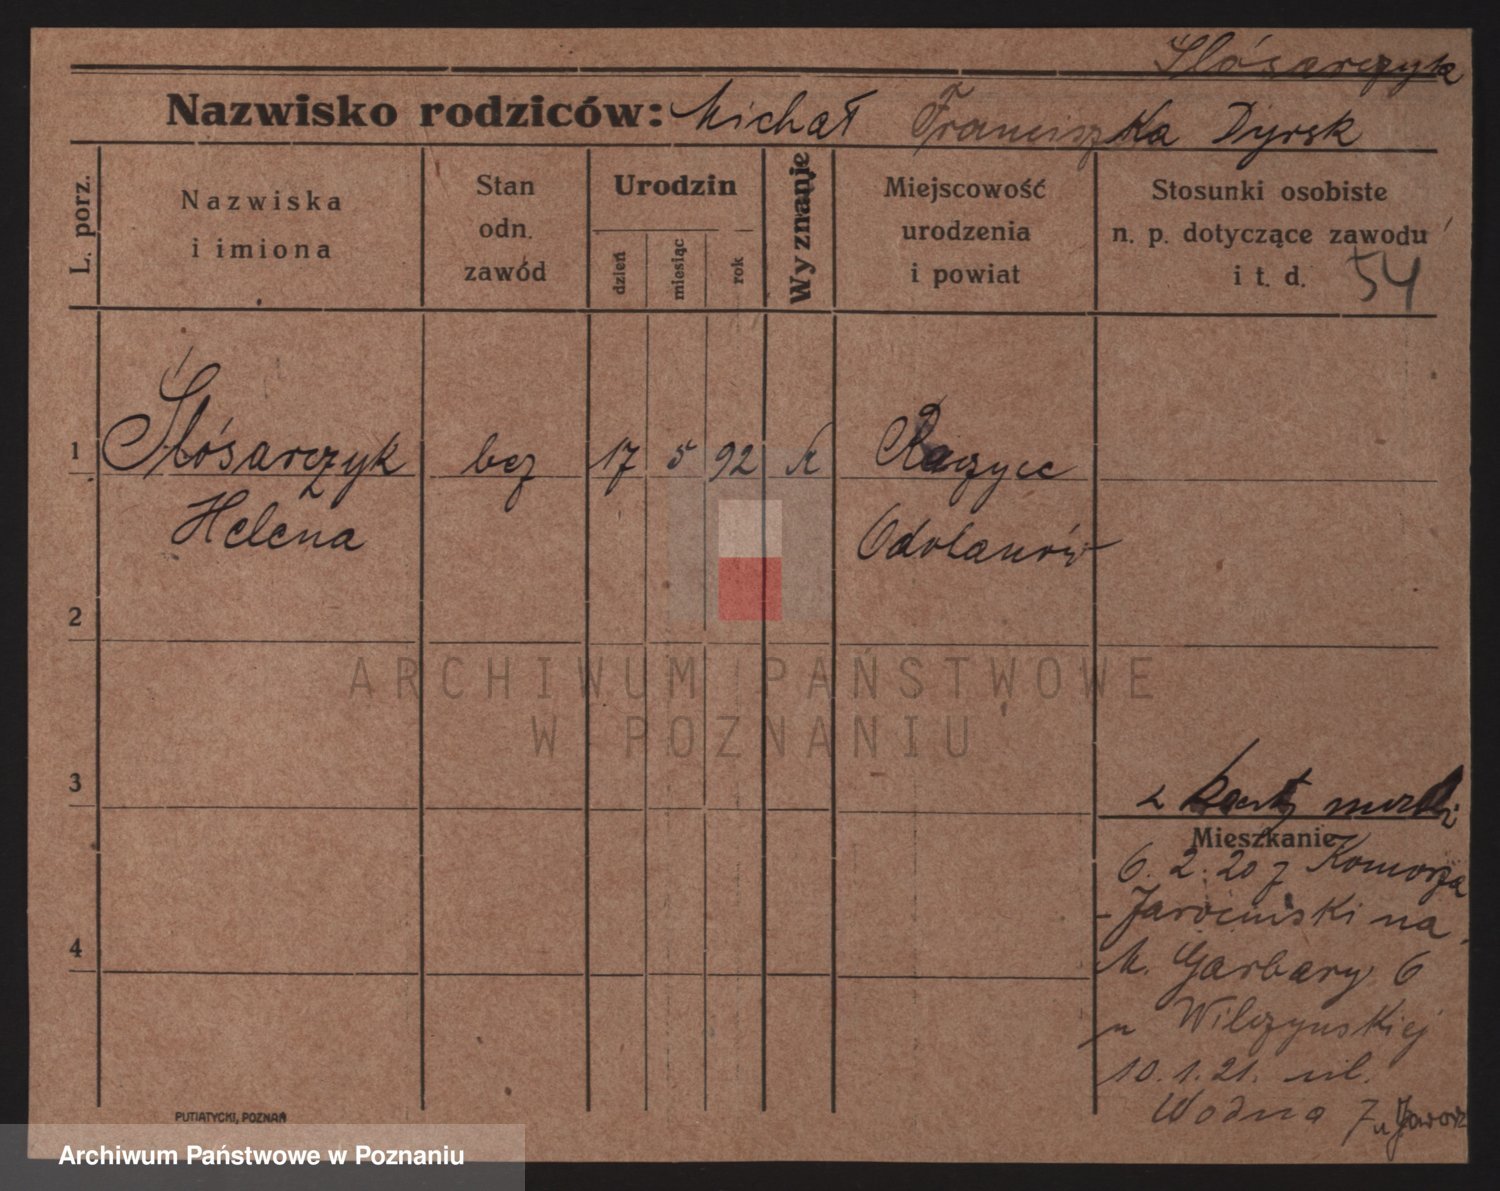 Ślósarczyk
Nazwisko rodziców: Michał Franciszka Dyrsk
L. porz.
Nazwiska
i imiona
Stan
odn.
zawód
Urodzin
dzień
miesiąc
rok
Wyznanie
Miejscowość
urodzenia
i powiat
Stosunki osobiste
n. p. dotyczące zawodu
i t. d. 54
1 Ślósarczyk bez 17 5 92 K Raczyce
Helena Odolanów
2
3
z karty
Mieszkanie
6.2.20 z Komorza
Jarociński na
M. Garbary 6
u Wilczyńskiej
10.1.21. ul.
Wodna 7 u
4
PUTIATYCKI, POZNAŃ
ARCHIWUM PAŃSTWOWE
W POZNANIU
Archiwum Państwowe w Poznaniu